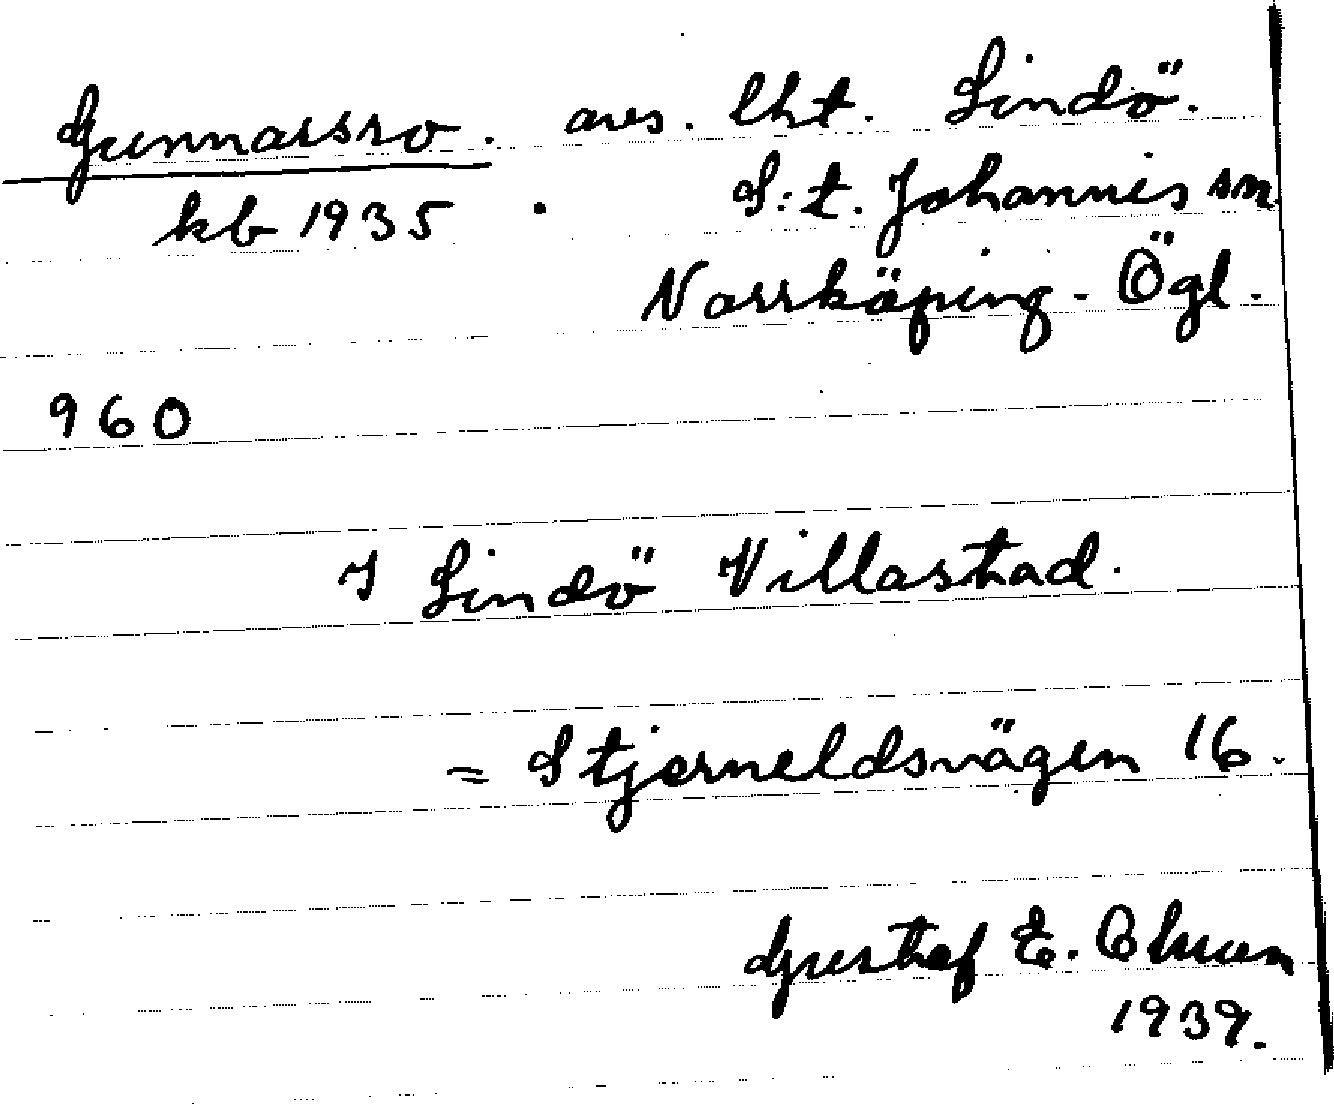 Gunnarsro. avs. lht. Lindö.
kb 1935 . S:t. Johannis sn
Norrköping - Ögl.
960
I Lindö Villastad.
= Stjerneldsvägen 16.
Gustaf E.
1939.